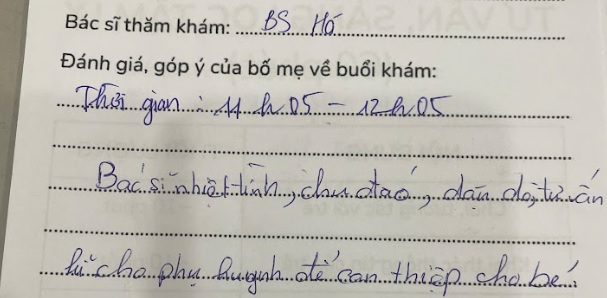 Bác sĩ thăm khám: BS Hố
Đánh giá, góp ý của bố mẹ về buổi khám:
Thời gian: 11h05 - 12h05
Bác sĩ nhiệt tình, chu đáo, dặn dò, tư vấn
kĩ cho phụ huynh để can thiệp cho bé.